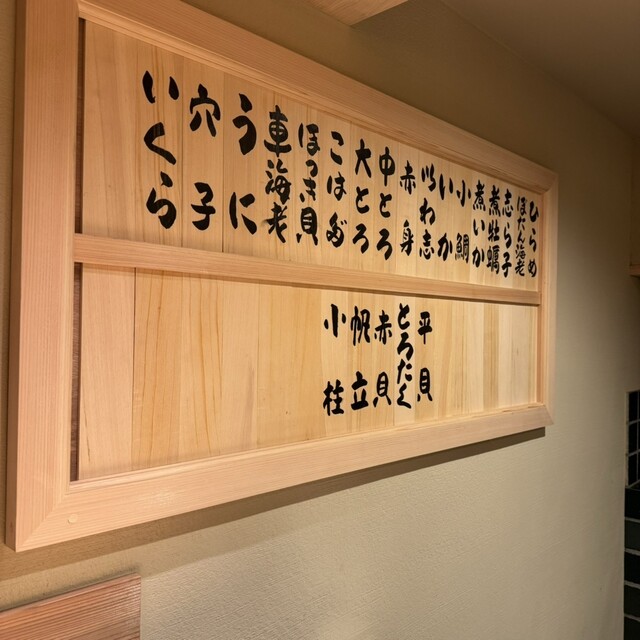 ひらめ
ぼたん海老
志ら子
煮牡蠣
煮いか
小鯛
いか
いわ志
赤身
中とろ
大とろ
こはだ
ほっき貝
車海老
うに
穴子
いくら
平貝
とろたく
赤貝
帆立
小柱